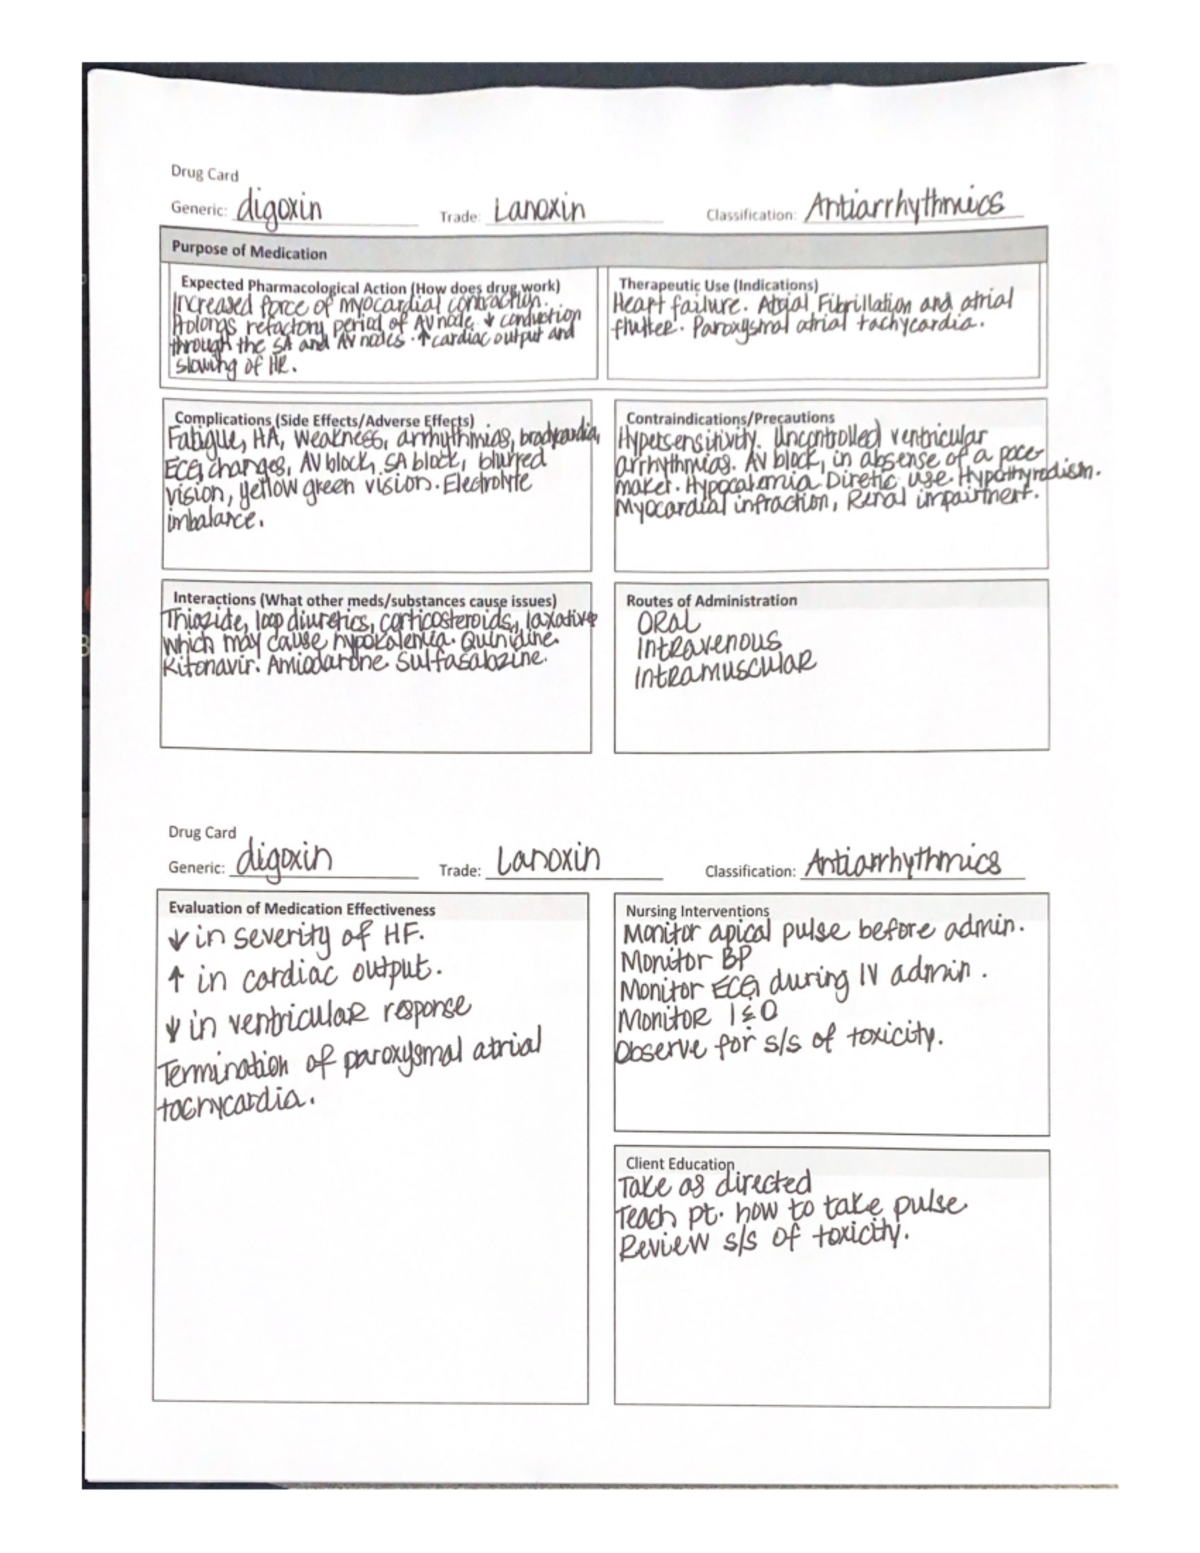 Drug Card
Generic: digoxin Trade: Lanoxin Classification: Antiarrhythmics
Purpose of Medication
Expected Pharmacological Action (How does drug work)
Increased force of myocardial contraction.
Prolongs refactory period of AV node. ↓ conduction
through the SA and AV nodes. ↑ cardiac output and
slowing of HR.
Therapeutic Use (Indications)
Heart failure. Atrial Fibrillation and atrial
flutter. Paroxysmal atrial tachycardia.
Complications (Side Effects/Adverse Effects)
Fatigue, HA, weakness, arrhythmias, bradycardia,
ECG changes, AV block, SA block, blurred
vision, yellow green vision. Electrolyte
imbalance.
Contraindications/Precautions
Hypersensitivity. Uncontrolled ventricular
arrhythmias. AV block, in absense of a pace
maker. Hypocalemia. Diretic use. Hypothyrodism.
Myocardial infraction, Renal impairment.
Interactions (What other meds/substances cause issues)
Thiazide, loop diuretics, corticosteroids, laxative
which may cause hypokalemia. Quinidine.
Ritonavir. Amiodarone. Sulfasalazine.
Routes of Administration
ORAL
Intravenous
Intramuscular
Drug Card
Generic: digoxin Trade: Lanoxin Classification: Antiarrhythmics
Evaluation of Medication Effectiveness
↓ in severity of HF.
↑ in cardiac output.
↓ in ventricular response
Termination of paroxysmal atrial
tachycardia.
Nursing Interventions
Monitor apical pulse before admin.
Monitor BP
Monitor ECG during IV admin.
Monitor I & O
Observe for s/s of toxicity.
Client Education
Take as directed
Teach pt. how to take pulse.
Review s/s of toxicity.